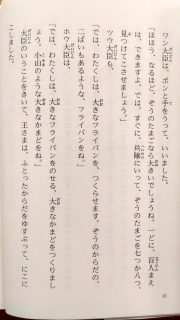 ワン大臣は、ポンと手をうって、いいました。
「ほほう、なるほど。ぞうのたまごなら大きいでしょうね。一どに、百人まえ
は、できますよ。では、すぐに、兵隊にいって、ぞうのたまごを七つか八つ、
見つけてこさせましょう。」
ツウ大臣も、
「では、わたくしは、大きなフライパンを、つくらせます。ぞうのからだの、
二ばいもあるような、フライパンをね。」
ホウ大臣は、
「では、わたくしは、大きなフライパンをのせる、大きなかまどをつくりまし
ょう。小山のような大きなかまどをね。」
大臣のいうことをきいて、王さまは、ふとったからだをゆすぶって、にこに
こしました。